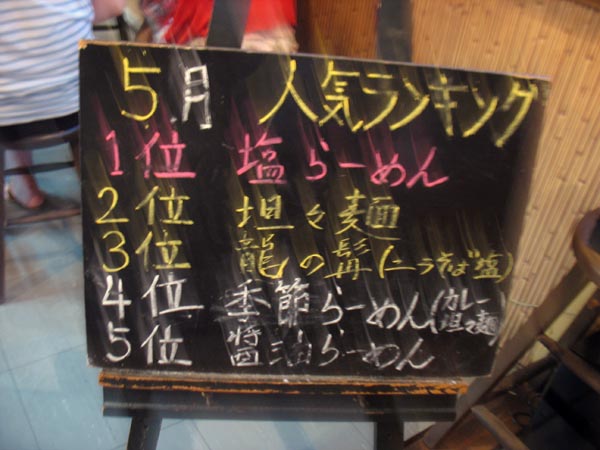 5月 人気ランキング
1位 塩らーめん
2位 坦々麺
3位 龍の髯(ニラそば塩)
4位 季節らーめん(カレー坦々麺)
5位 醤油らーめん